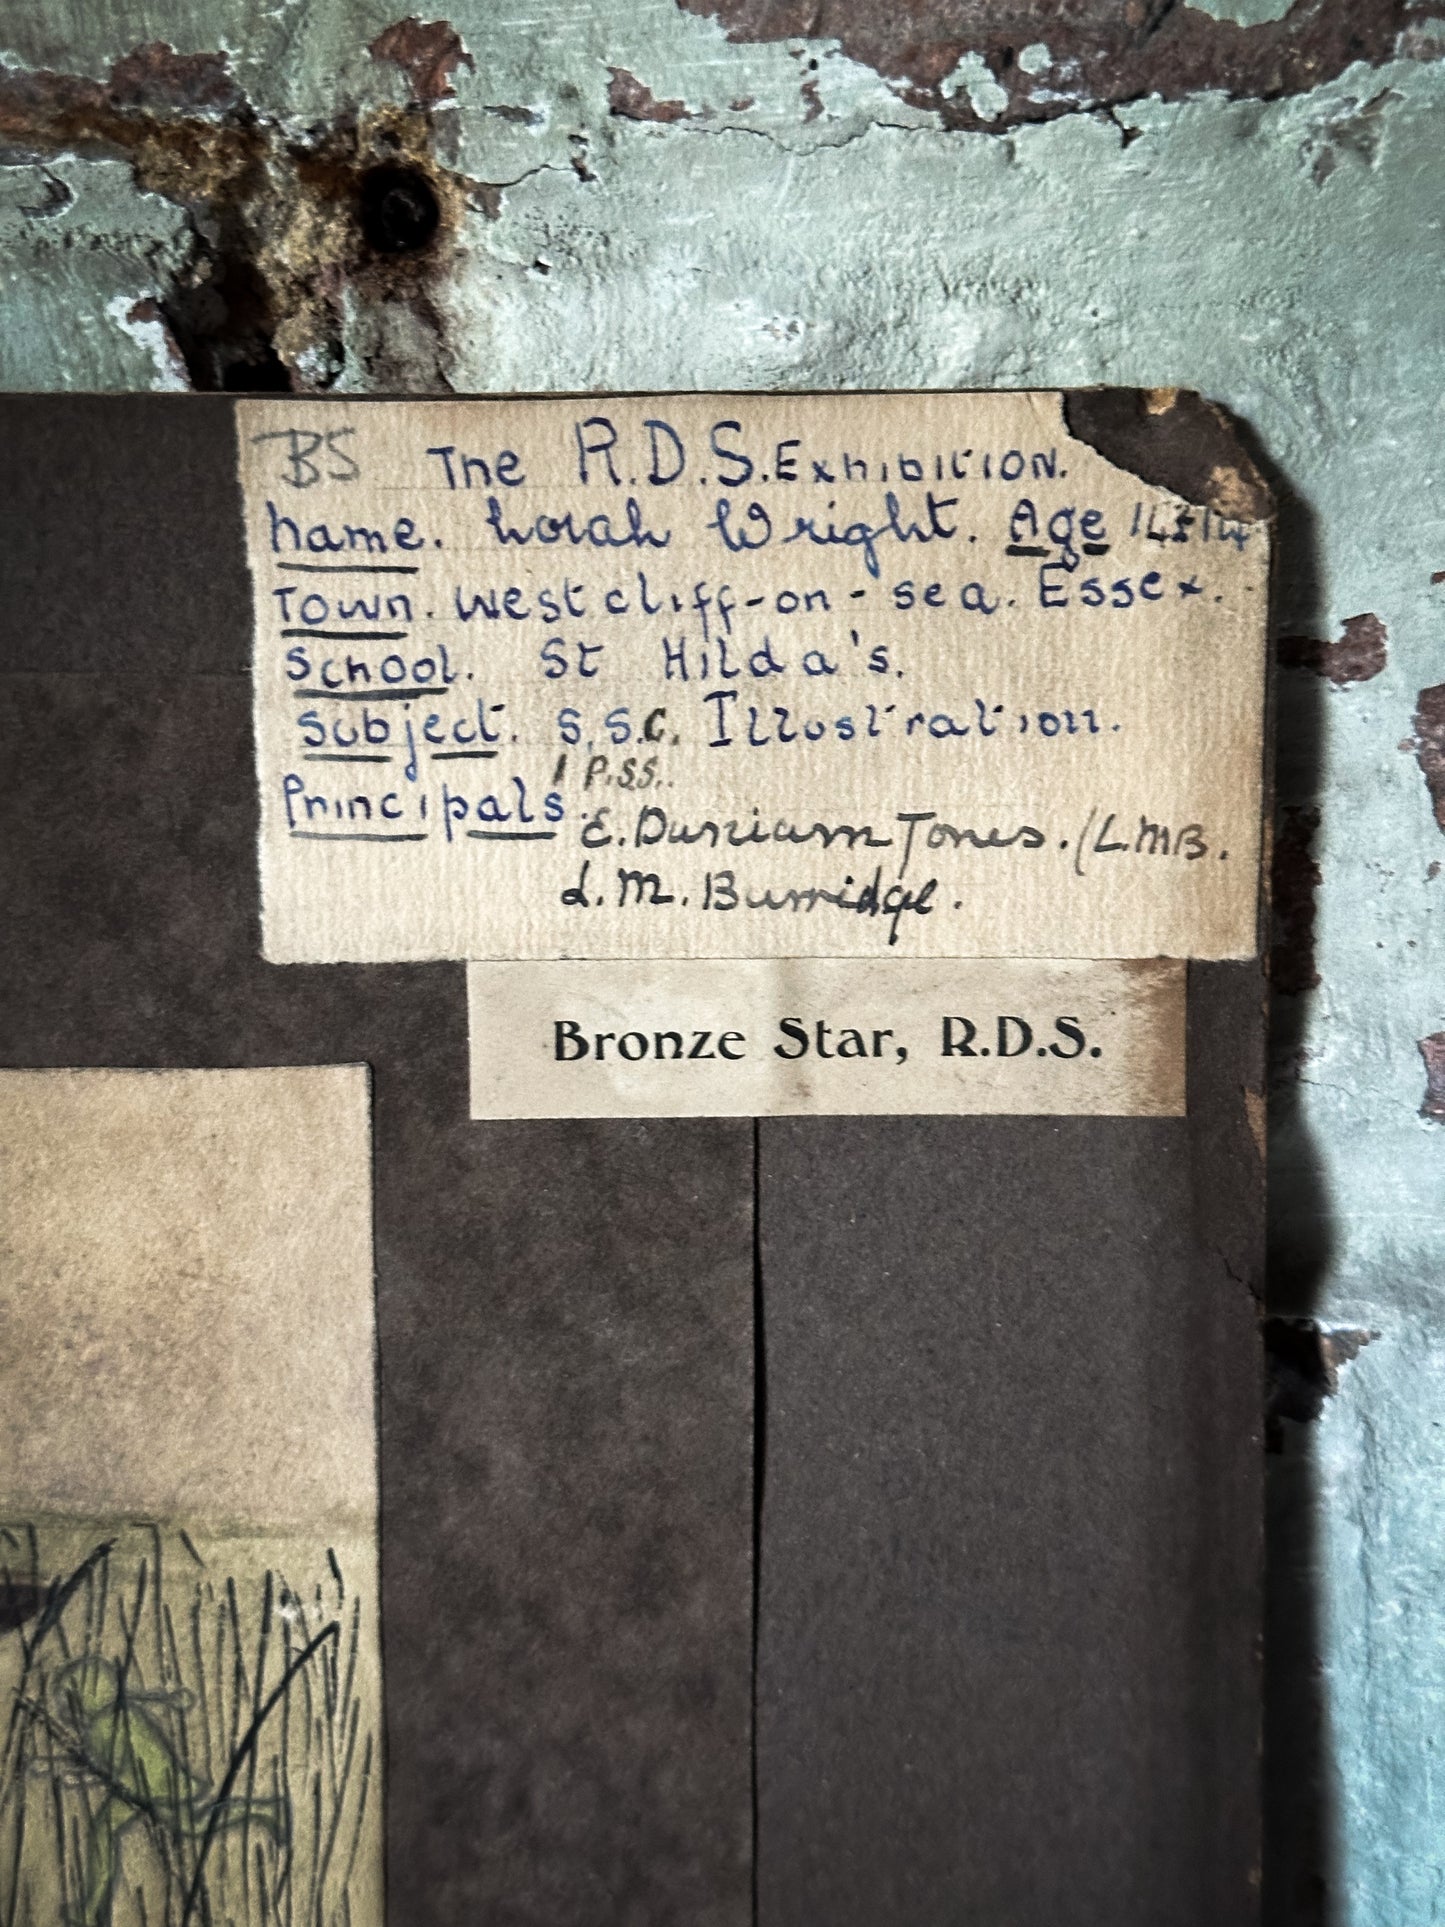 BS The R.D.S. Exhibition.
Name. Norah Wright. Age 14
Town. Westcliff-on-sea. Essex.
School. St Hilda's.
Subject. S.S.C. Illustration.
P.S.S..
Principals. E. Durriam Jones. / L.M.B.
L.M. Burridge.
Bronze Star, R.D.S.